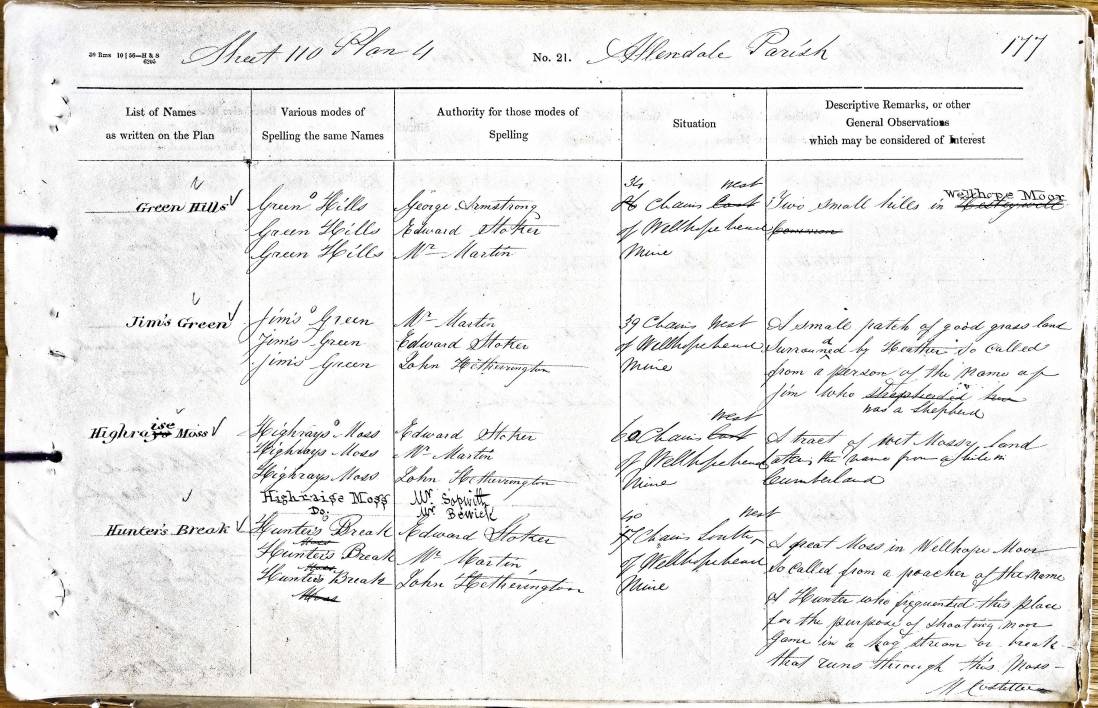 39 Rms 10 | 56—H & S
6205
Sheet 110 Plan 4
No. 21.
Allendale Parish
177
List of Names
as written on the Plan
Various modes of
Spelling the same Names
Authority for those modes of
Spelling
Situation
Descriptive Remarks, or other
General Observations
which may be considered of Interest
Green Hills
Green Hills
Green Hills
Green Hills
George Armstrong
Edward Stoker
Mr Martin
34 West
Chains East
of Wellhopehead
Mine
Wellhope Moor
Two small hills in
Common
Jim's Green
Jim's Green
Jim's Green
Jim's Green
Mr Martin
Edward Stoker
John Hetherrington
39 Chains West
of Wellhopehead
Mine
A small patch of good grass land
Surrounded by Heather so called
from a person of the name of
Jim who shepherded
was a Shepherd
ise
Highrays Moss
Highrays Moss
Highrays Moss
Highrays Moss
Highraise Moss
Do.
Edward Stoker
Mr Martin
John Hetherrington
Mr. Sopwith
Mr Bewick
West
60 Chains East
of Wellhopehead
Mine
A tract of wet Mossy land
takes the name from a hill in
Cumberland
Hunter's Break
Hunter's Break
Moss
Hunter's Break
Moss
Hunter's Break
Moss
Edward Stoker
Mr Martin
John Hetherington
40 West
Chains South
of Wellhopehead
Mine
A great Moss in Wellhope Moor
So called from a poacher of the name
of Hunter who frequented this place
for the purpose of shooting moor
Game in a hag stream or break
that runs through this Moss-
M Costello